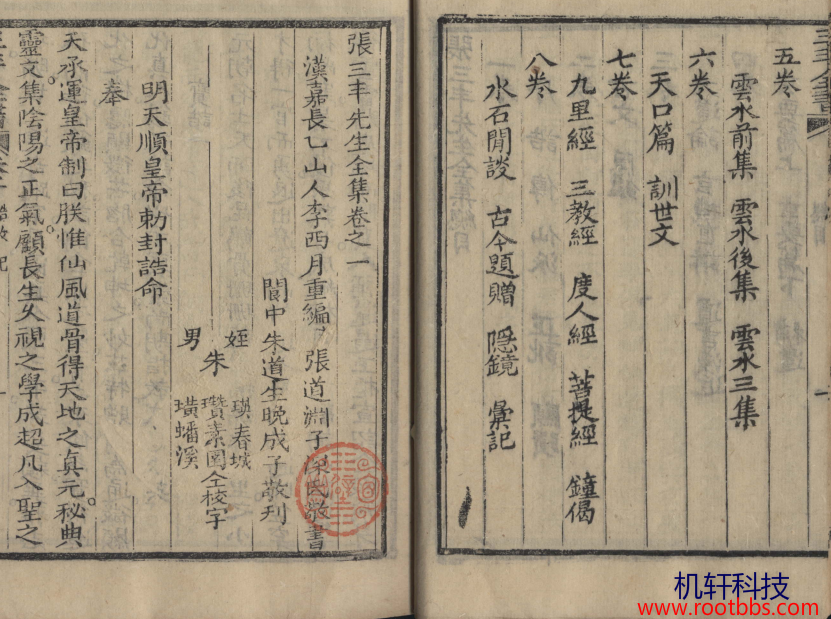 五卷
雲水前集 雲水後集 雲水三集
六卷
天口篇 訓世文
七卷
九里經 三教經 度人經 菩提經 鐘偈
八卷
水石閒談 古今題贈 隱鏡 彙記
張三丰先生全集卷之一
漢嘉長乙山人李西月重編 張道淵子 氏敬書
閬中朱道生晚成子敬刊
姪 瑛春城
男 朱 瓚素園仝校字
璜蟠溪
明天順皇帝勅封誥命
奉
天承運皇帝制曰朕惟仙風道骨得天地之真元秘典
靈文集陰陽之正氣顧長生久視之學成超凡入聖之
机轩科技
www.rootbbs.com